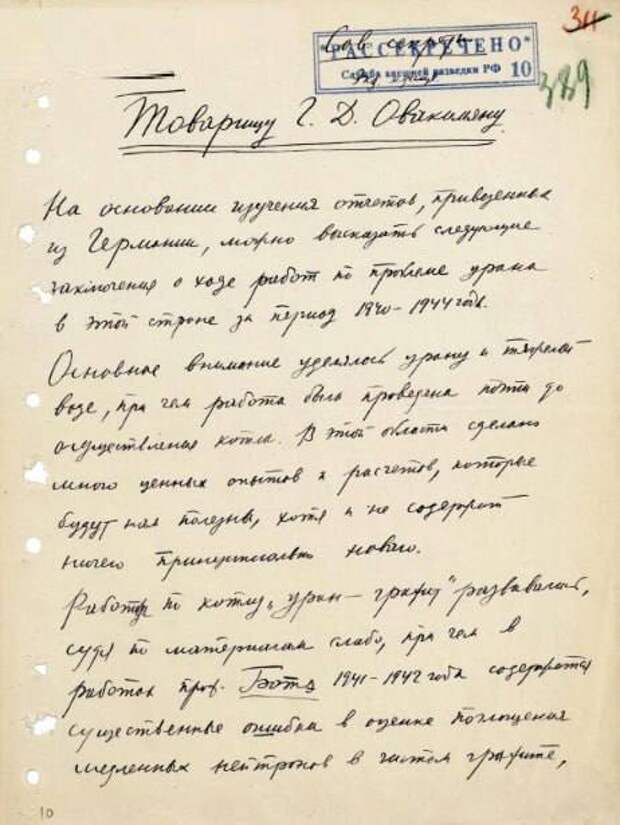 Зл
Сов. секретно
"РАССЕКРЕЧЕНО"
Служба внешней разведки РФ 10
389
Товарищу Г. Д. Овакимяну
На основании изучения отчетов, привезенных
из Германии, можно высказать следующие
заключения о ходе работ по проблеме урана
в этой стране за период 1940-1944 года.
Основное внимание уделялось урану и тяжелой
воде, при чем работа была проведена почти до
осуществления котла. В этой области сделано
много ценных опытов и расчетов, которые
будут нам полезны, хотя и не содержат
ничего принципиально нового.
Работы по котлу „уран — графит" развивались,
судя по материалам слабо, при чем в
работах проф. Боте 1941-1942 года содержатся
существенные ошибка в оценке поглощения
медленных нейтронов в чистом графите,
10